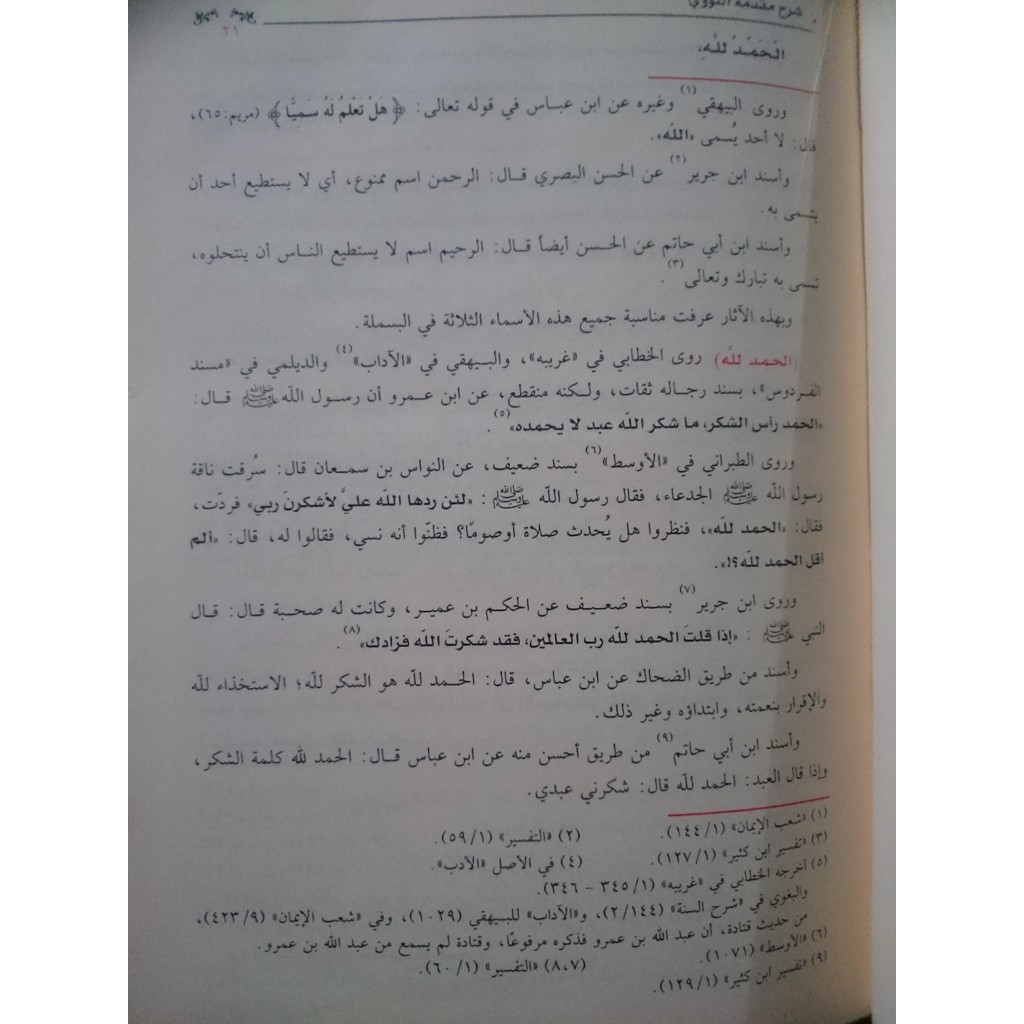 شرح مقدمة النووي
٢١
الْحَمْدُ للَّهِ،
وروى البيهقي(١) وغيره عن ابن عباس في قوله تعالى: ﴿هَلْ تَعْلَمُ لَهُ سَمِيًّا﴾ (مريم: ٦٥)،
قال: لا أحد يُسمى «اللَّه».
وأسند ابن جرير(٢) عن الحسن البصري قال: الرحمن اسم ممنوع، أي لا يستطيع أحد أن
يتسمى به.
وأسند ابن أبي حاتم عن الحسن أيضاً قال: الرحيم اسم لا يستطيع الناس أن ينتحلوه،
تسمى به تبارك وتعالى(٣).
وبهذه الآثار عرفت مناسبة جميع هذه الأسماء الثلاثة في البسملة.
(الحمد للَّه) روى الخطابي في «غريبه»، والبيهقي في «الآداب»(٤) والديلمي في «مسند
الفردوس»، بسند رجاله ثقات، ولكنه منقطع، عن ابن عمرو أن رسول اللَّه ﷺ قال:
«الحمد رأس الشكر، ما شكر اللَّه عبد لا يحمده»(٥).
وروى الطبراني في «الأوسط»(٦) بسند ضعيف، عن النواس بن سمعان قال: سُرقت ناقة
رسول اللَّه ﷺ الجدعاء، فقال رسول اللَّه ﷺ: «لئن ردها اللَّه عليَّ لأشكرنَ ربي» فردّت،
فقال: «الحمد للَّه»، فنظروا هل يُحدث صلاة أوصومًا؟ فظنّوا أنه نسي، فقالوا له، قال: «ألم
اقل الحمد للَّه؟!».
وروى ابن جرير(٧) بسند ضعيف عن الحكم بن عمير، وكانت له صحبة قال: قال
النبي ﷺ: «إذا قلتَ الحمد للَّه رب العالمين، فقد شكرتَ اللَّه فزادك»(٨).
وأسند من طريق الضحاك عن ابن عباس، قال: الحمد للَّه هو الشكر للَّه؛ الاستخذاء للَّه
والإقرار بنعمته، وابتداؤه وغير ذلك.
وأسند ابن أبي حاتم(٩) من طريق أحسن منه عن ابن عباس قال: الحمد للَّه كلمة الشكر،
وإذا قال العبد: الحمد للَّه قال: شكرني عبدي.
(١) «شعب الإيمان» (١/١٤٤).
(٢) «التفسير» (١/٥٩).
(٣) «تفسير ابن كثير» (١/١٢٧).
(٤) في الأصل «الأدب».
(٥) أخرجه الخطابي في «غريبه» (١/٣٤٥ - ٣٤٦).
والبغوي في «شرح السنة» (٢/١٤٤)، و«الآداب» للبيهقي (١٠٢٩)، وفي «شعب الإيمان» (٩/٤٢٣)،
من حديث قتادة، أن عبد الله بن عمرو فذكره مرفوعًا، وقتادة لم يسمع من عبد الله بن عمرو.
(٦) «الأوسط» (١٠٧١).
(٨،٧) «التفسير» (١/٦٠).
(٩) «تفسير ابن كثير» (١/١٢٩).